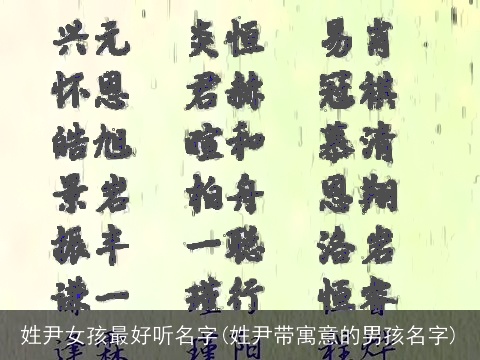 兴元 炎恒 易肖
怀恩 君赫 冠祺
皓旭 喧和 慕清
景岩 柏舟 恩翔
振丰 一聪 洛岩
谦一 瑾行 恒睿
姓尹女孩最好听名字(姓尹带寓意的男孩名字)